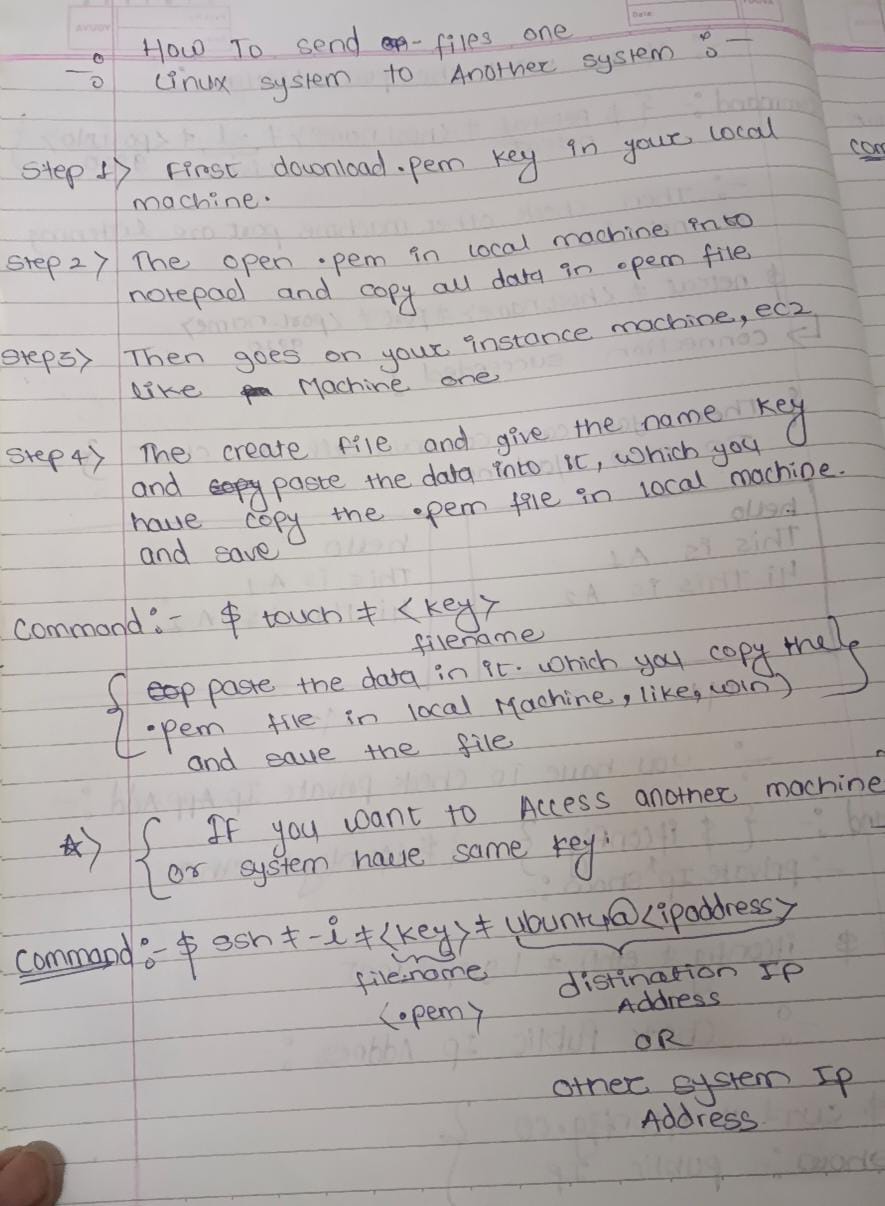 Date
-: How To send files one
Linux system to Another system :-
Step 1> First download .pem key in your local
machine.
Step 2> The open .pem in local machine into
notepad and copy all data in .pem file
Step 3> Then goes on your instance machine, ec2
like Machine one
Step 4> The create file and give the name key
and paste the data into it, which you
have copy the .pem file in local machine.
and save
Command :- $ touch ≠ <key>
filename
{ paste the data in it. which you copy the }
.pem file in local Machine, like, win)
and save the file
☆> { If you want to Access another machine
or system have same key.
Command :- $ ssh ≠ -i ≠ <key> ≠ ubuntu@<ipaddress>
filename distination Ip
<.pem> Address
OR
other system Ip
Address